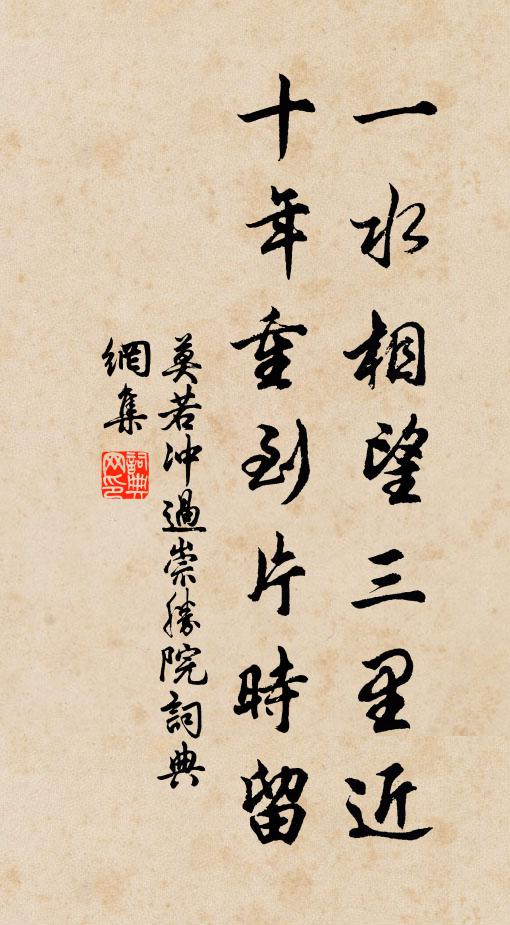 一水相望三里近
十年重到片時留
莫若冲過崇勝院詞典
網集
詞典
网印